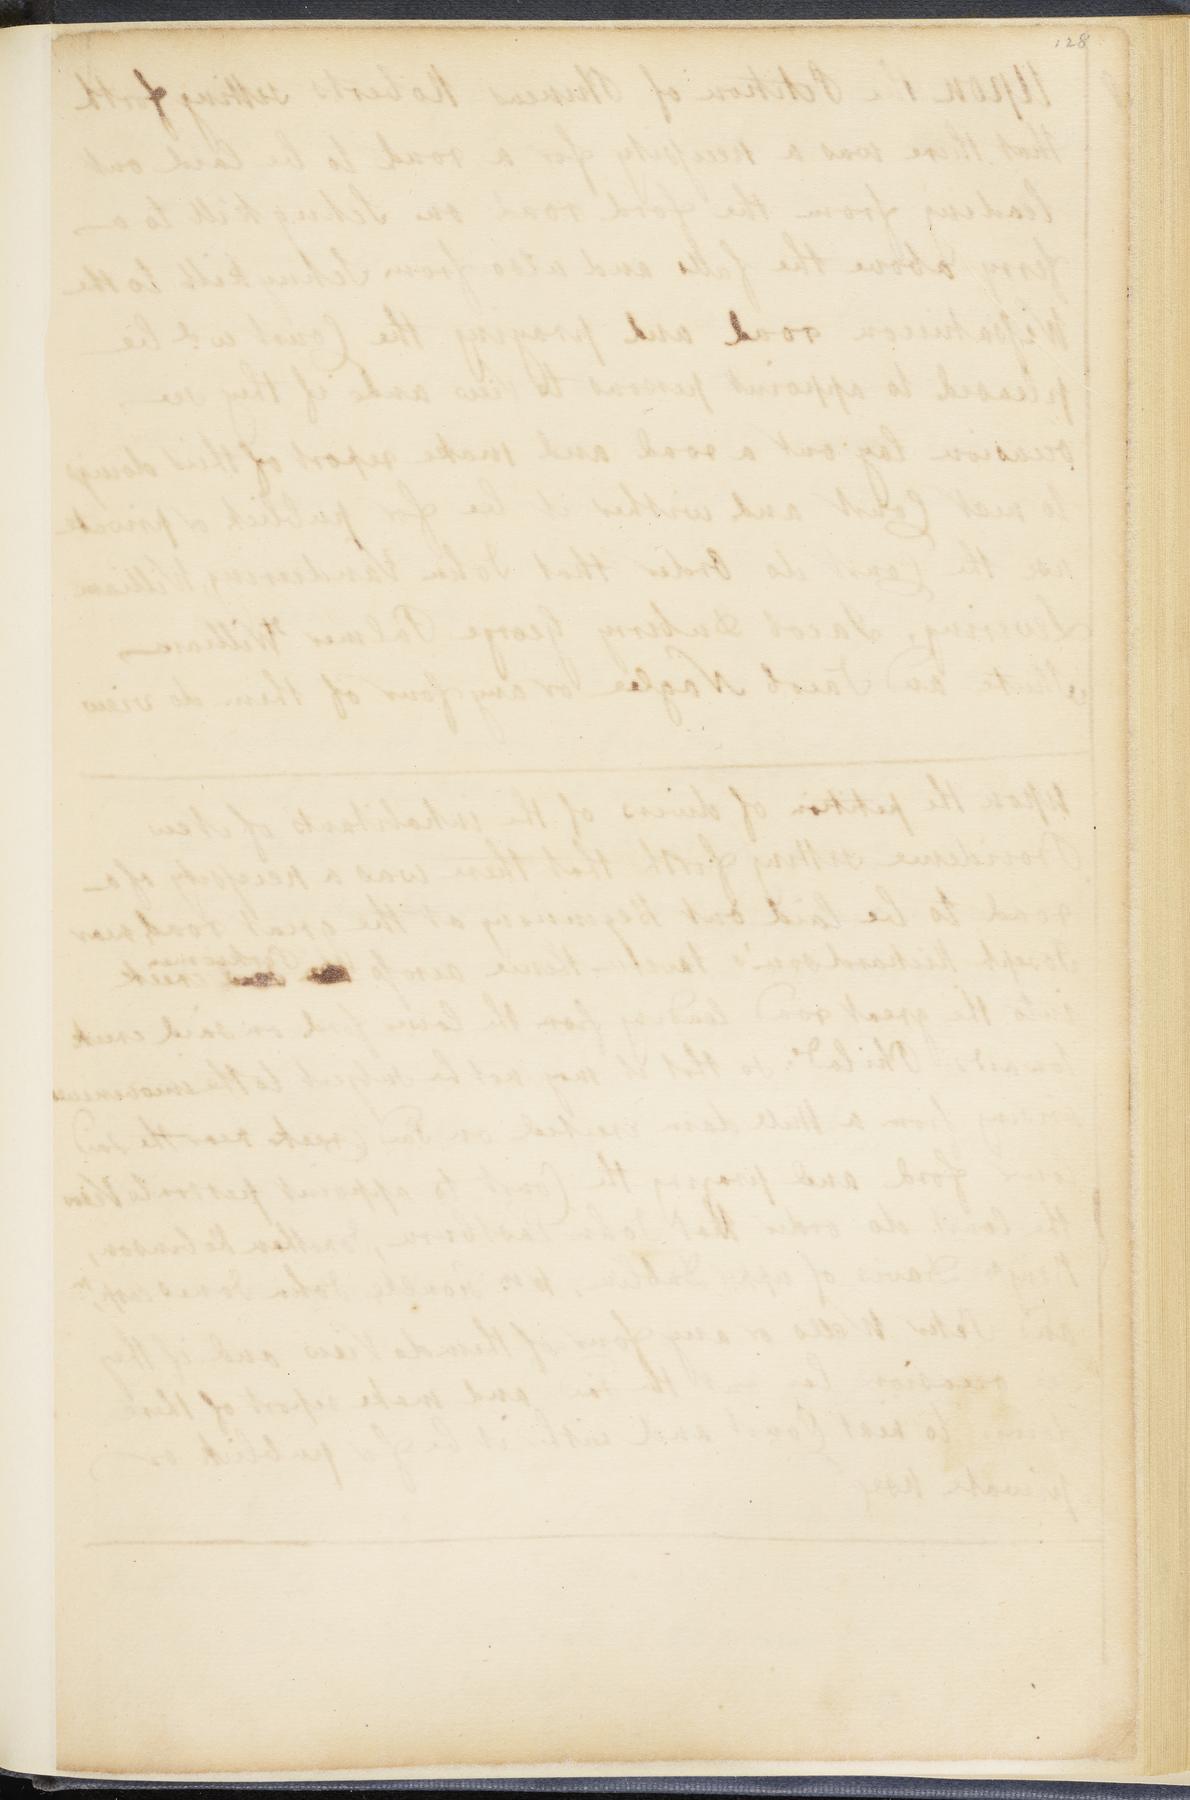 128
Upon the Petition of Phineas Roberts setting forth
that there was a necessity for a road to be laid out
leading from the ford road on Schuylkill to a
ferry above the falls and also from Schuylkill to the
Wissahicon road and praying the Court wd be
pleased to appoint persons to View and if they see
occasion lay out a road and make report of their doings
to next Court and wither it be for publick or private
use the Court do Order that John Vandeering William
Levering, Jacob Duberry George Palmer William
White and Jacob Naglee or any four of them do view
Upon the petition of divers of the inhabitants of New
Providence setting forth that there was a necessity of a
road to be laid out Beginning at the great road near
Joseph Richardson's thence across Perkiomen creek
into the great road leading from the lower ford on said creek
towards Philada so that it may not be subject to the
arising from a Mill dam erected on Creek near the
ford and praying the Court to appoint persons to View
the Court do order that John Robinson,
Davis of upp Dublin, John Jones
and Peter Wells or any four of them do View and if they
see occasion lay out the and make report of their
to next Court and it be for publick or
private